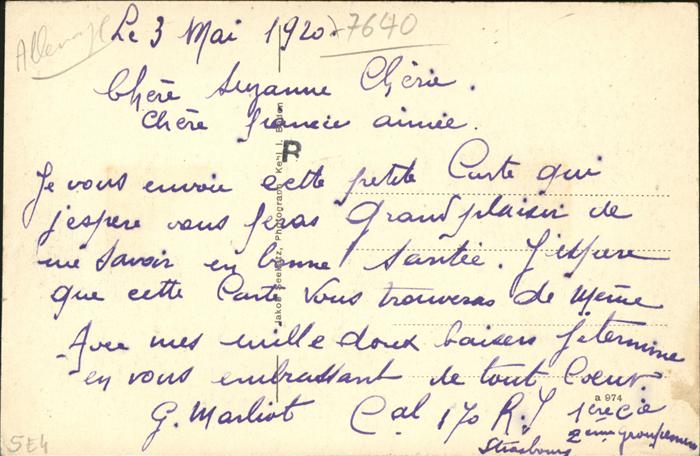 Allemagne
Le 3 Mai 1920.
7640
Chère Suzanne Chérie.
Chère fiancée aimée.
R
Je vous envoie cette petite Carte qui
j'espere vous feras Grand plaisir de
me savoir en bonne santée. J'espere
que cette Carte Vous trouveras de même
Avec mes mille doux baisers je termine
en vous embrassant de tout Coeur.
G. Marliot Cal 170 R.I 1ere Cie
Strasbourg 2ème Groupement
a 974
5E4
Jakob Seelkatz, Photograph Kehl I. Baden